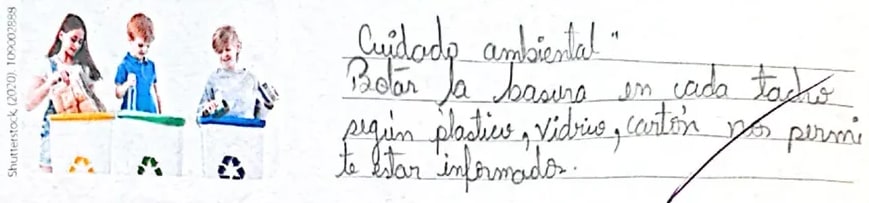 Shutterstock, (2020). 109002888
Cuidado ambiental"
Botar la basura en cada tacho
según plastico, vidrio, cartón nos permi
te estar informado.